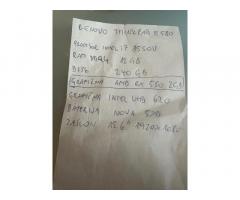 LENOVO THINKPAD E580
PROCESOR INTEL I7 8550U
RAM DDR4 12 GB
DISK 240 GB
GRAFIČNA AMD RX 550 2GB
GRAFIČNA INTEL UHD 620
BATERIJA NOVA
ZASLON 15.6" 1920X1080